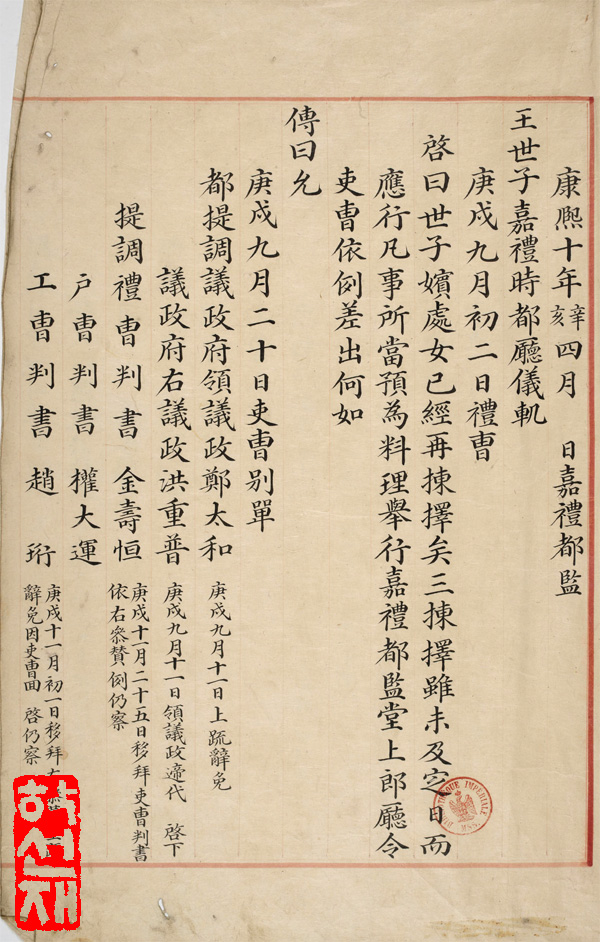 康熙十年辛亥四月　日嘉禮都監
王世子嘉禮時都廳儀軌
庚戌九月初二日禮曹
啓曰世子嬪處女已經再揀擇矣三揀擇雖未及定日而
應行凡事所當預為料理舉行嘉禮都監堂上郎廳令
吏曹依例差出何如
傳曰允
庚戌九月二十日吏曹別單
都提調議政府領議政鄭太和　庚戌九月十一日上疏辭免
議政府右議政洪重普　庚戌九月十一日領議政遞代　啓下
提調禮曹判書　金壽恒　庚戌十一月二十五日移拜吏曹判書
依右參贊例仍察
戶曹判書　權大運
工曹判書　趙珩　庚戌十一月初一日移拜右
辭免因吏曹回　啓仍察
학선재
IMPERIALE
MSS.